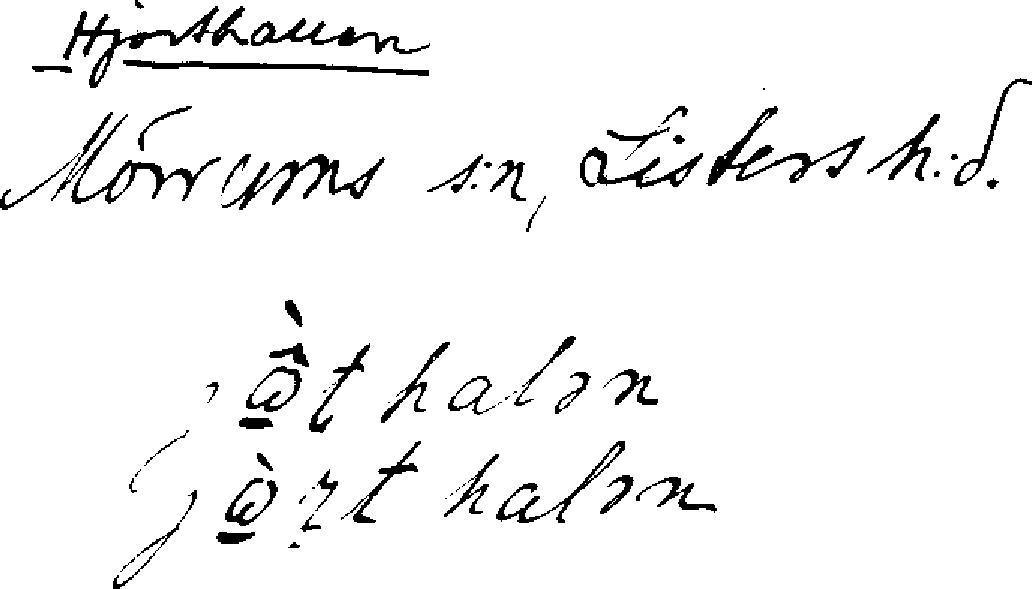 Hjorthallen
Mörrums s:n, Listers h.d.
jω̂̀t halən
jὼrt halən